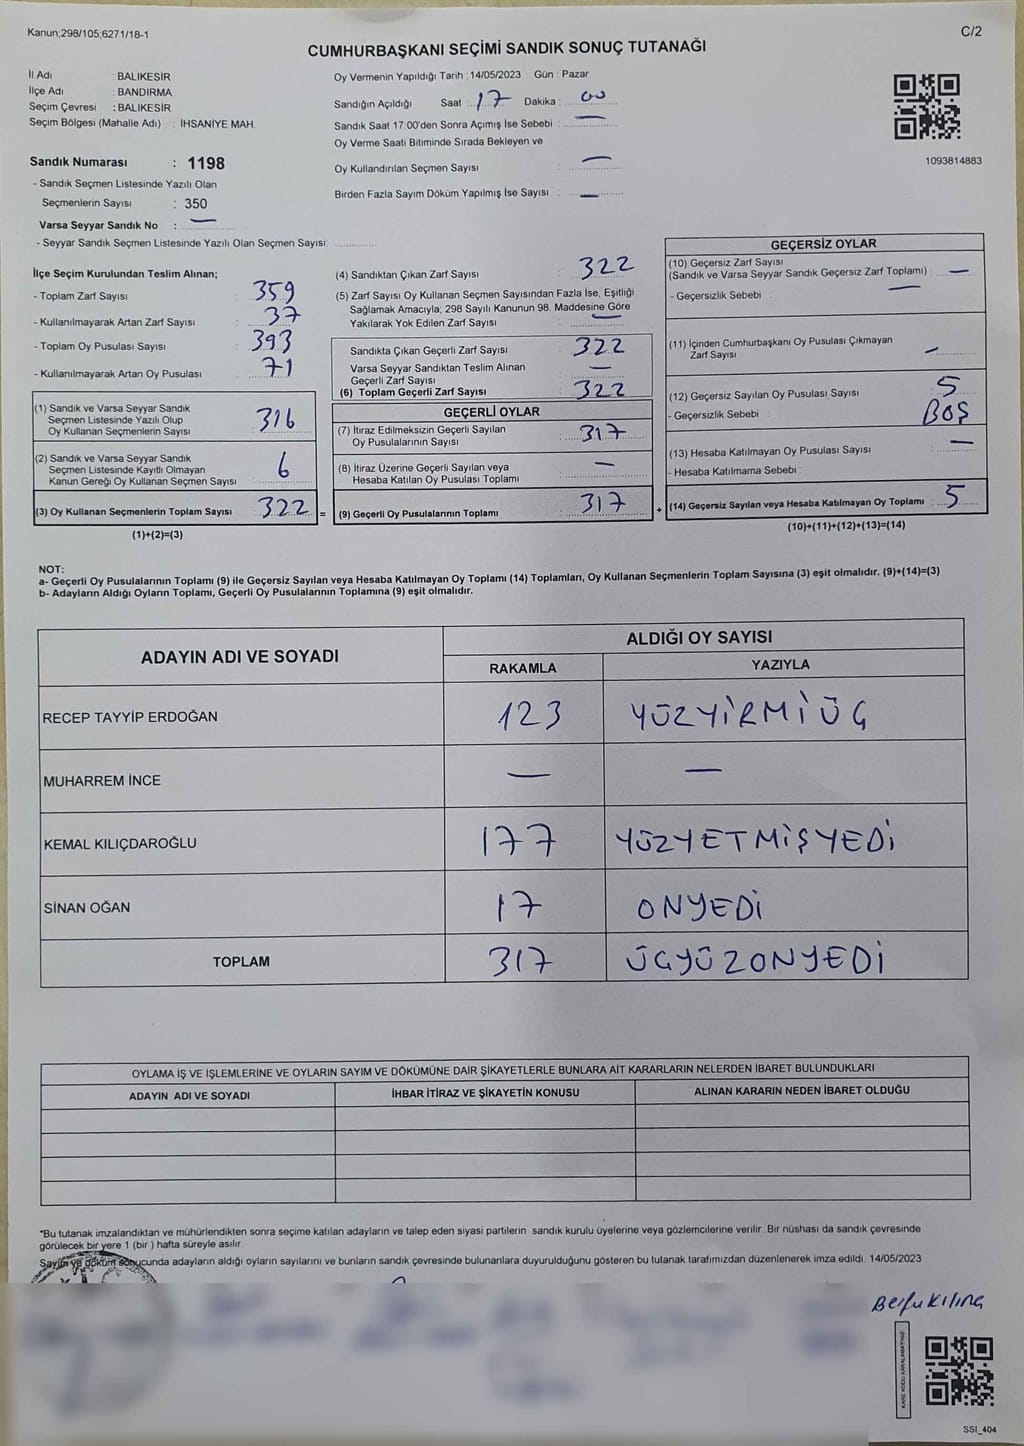 Kanun;298/105;6271/18-1
C/2
CUMHURBAŞKANI SEÇİMİ SANDIK SONUÇ TUTANAĞI
İl Adı : BALIKESİR
İlçe Adı : BANDIRMA
Seçim Çevresi : BALIKESİR
Seçim Bölgesi (Mahalle Adı) : İHSANİYE MAH.
Oy Vermenin Yapıldığı Tarih : 14/05/2023 Gün : Pazar
Sandığın Açıldığı Saat : 17 Dakika : 00
Sandık Saat 17:00'den Sonra Açımış İse Sebebi : —
Oy Verme Saati Bitiminde Sırada Bekleyen ve
Oy Kullandırılan Seçmen Sayısı : —
Birden Fazla Sayım Döküm Yapılmış İse Sayısı : —
1093814883
Sandık Numarası : 1198
- Sandık Seçmen Listesinde Yazılı Olan
Seçmenlerin Sayısı : 350
Varsa Seyyar Sandık No : —
- Seyyar Sandık Seçmen Listesinde Yazılı Olan Seçmen Sayısı:
İlçe Seçim Kurulundan Teslim Alınan;
- Toplam Zarf Sayısı : 359
- Kullanılmayarak Artan Zarf Sayısı : 37
- Toplam Oy Pusulası Sayısı : 393
- Kullanılmayarak Artan Oy Pusulası : 71
(1) Sandık ve Varsa Seyyar Sandık
Seçmen Listesinde Yazılı Olup
Oy Kullanan Seçmenlerin Sayısı : 316
(2) Sandık ve Varsa Seyyar Sandık
Seçmen Listesinde Kayıtlı Olmayan
Kanun Gereği Oy Kullanan Seçmen Sayısı : 6
(3) Oy Kullanan Seçmenlerin Toplam Sayısı : 322 =
(1)+(2)=(3)
(4) Sandıktan Çıkan Zarf Sayısı : 322
(5) Zarf Sayısı Oy Kullanan Seçmen Sayısından Fazla İse, Eşitliği
Sağlamak Amacıyla; 298 Sayılı Kanunun 98. Maddesine Göre
Yakılarak Yok Edilen Zarf Sayısı : —
Sandıkta Çıkan Geçerli Zarf Sayısı : 322
Varsa Seyyar Sandıktan Teslim Alınan
Geçerli Zarf Sayısı : —
(6) Toplam Geçerli Zarf Sayısı : 322
GEÇERLİ OYLAR
(7) İtiraz Edilmeksizin Geçerli Sayılan
Oy Pusulalarının Sayısı : 317
(8) İtiraz Üzerine Geçerli Sayılan veya
Hesaba Katılan Oy Pusulası Toplamı : —
(9) Geçerli Oy Pusulalarının Toplamı : 317 +
GEÇERSİZ OYLAR
(10) Geçersiz Zarf Sayısı
(Sandık ve Varsa Seyyar Sandık Geçersiz Zarf Toplamı) : —
- Geçersizlik Sebebi : —
(11) İçinden Cumhurbaşkanı Oy Pusulası Çıkmayan
Zarf Sayısı : —
(12) Geçersiz Sayılan Oy Pusulası Sayısı : 5
- Geçersizlik Sebebi : BOŞ
(13) Hesaba Katılmayan Oy Pusulası Sayısı : —
- Hesaba Katılmama Sebebi :
(14) Geçersiz Sayılan veya Hesaba Katılmayan Oy Toplamı : 5
(10)+(11)+(12)+(13)=(14)
NOT:
a- Geçerli Oy Pusulalarının Toplamı (9) ile Geçersiz Sayılan veya Hesaba Katılmayan Oy Toplamı (14) Toplamları, Oy Kullanan Seçmenlerin Toplam Sayısına (3) eşit olmalıdır. (9)+(14)=(3)
b- Adayların Aldığı Oyların Toplamı, Geçerli Oy Pusulalarının Toplamına (9) eşit olmalıdır.
ADAYIN ADI VE SOYADI
ALDIĞI OY SAYISI
RAKAMLA YAZIYLA
RECEP TAYYİP ERDOĞAN 123 YÜZYİRMİÜÇ
MUHARREM İNCE — —
KEMAL KILIÇDAROĞLU 177 YÜZYETMİŞYEDİ
SİNAN OĞAN 17 ONYEDİ
TOPLAM 317 ÜÇYÜZONYEDİ
OYLAMA İŞ VE İŞLEMLERİNE VE OYLARIN SAYIM VE DÖKÜMÜNE DAİR ŞİKAYETLERLE BUNLARA AİT KARARLARIN NELERDEN İBARET BULUNDUKLARI
ADAYIN ADI VE SOYADI İHBAR İTİRAZ VE ŞİKAYETİN KONUSU ALINAN KARARIN NEDEN İBARET OLDUĞU
*Bu tutanak imzalandıktan ve mühürlendikten sonra seçime katılan adayların ve talep eden siyasi partilerin sandık kurulu üyelerine veya gözlemcilerine verilir. Bir nüshası da sandık çevresinde
görülecek bir yere 1 (bir ) hafta süreyle asılır.
Sayım ve döküm sonucunda adayların aldığı oyların sayılarını ve bunların sandık çevresinde bulunanlara duyurulduğunu gösteren bu tutanak tarafımızdan düzenlenerek imza edildi. 14/05/2023
Berfu Kılınç
KARE KODU KARALAMAYINIZ!
SSI_404